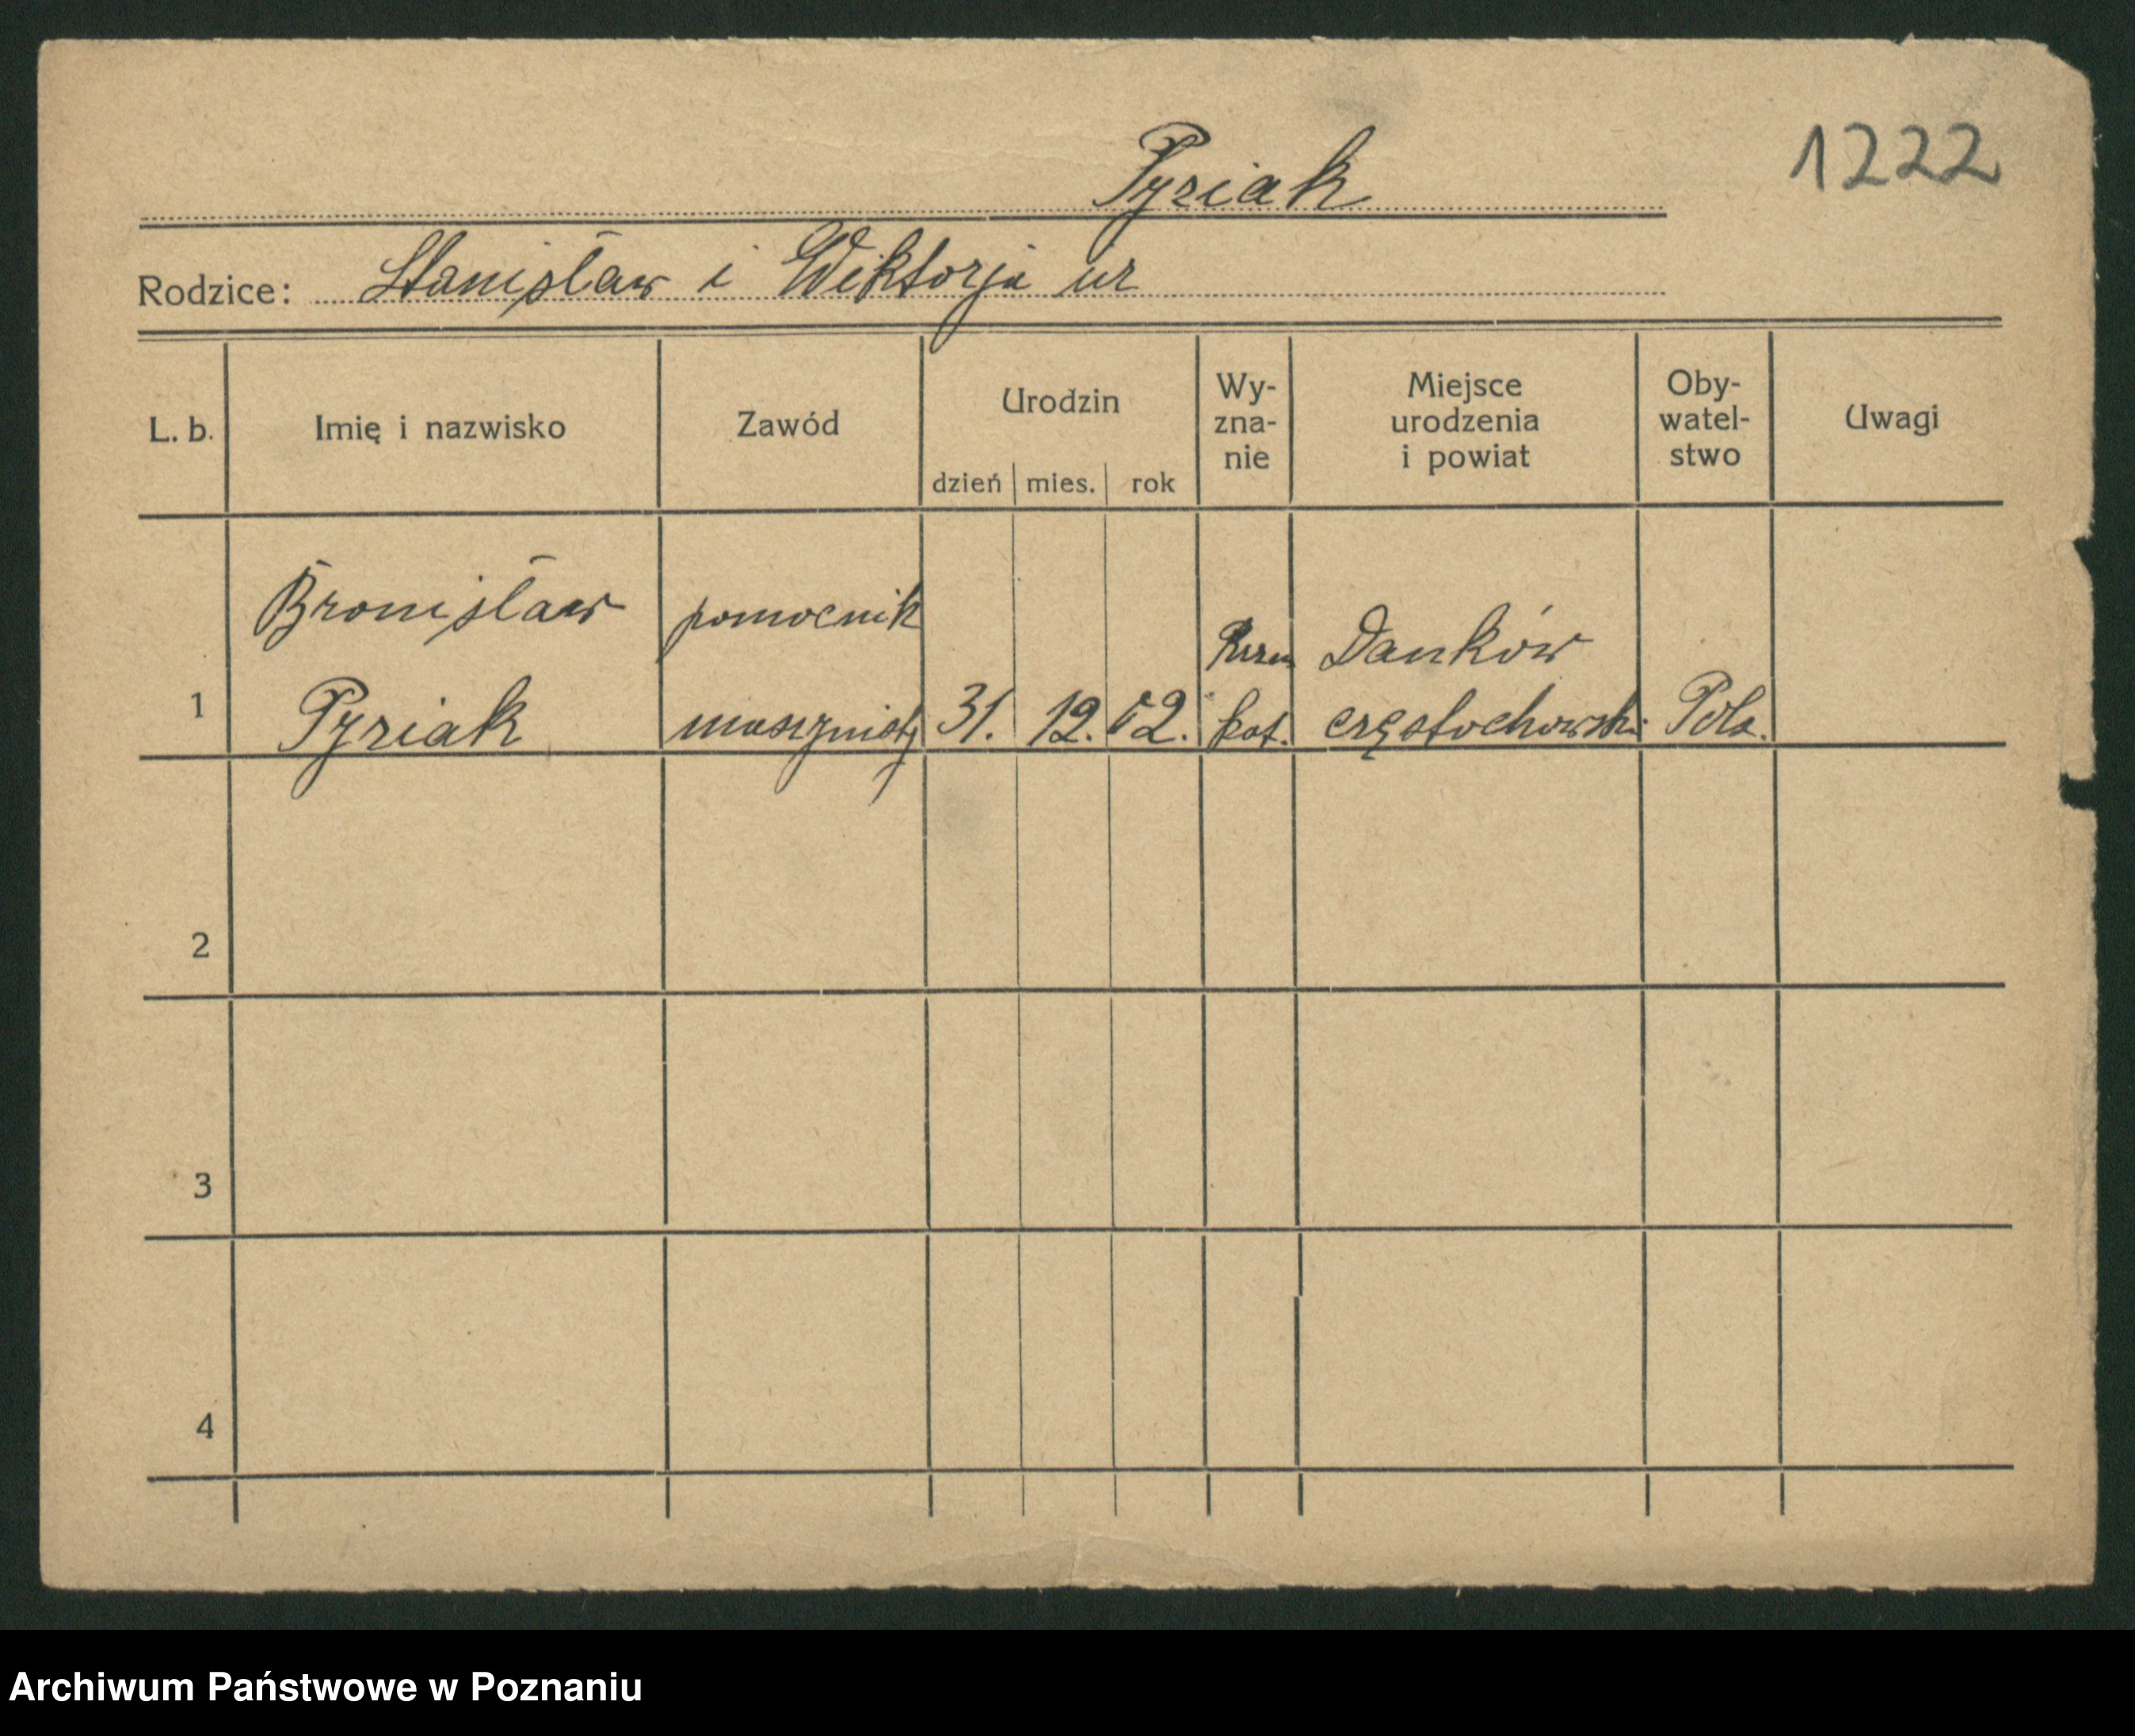 1222
Pyziak
Rodzice: Stanisław i Wiktorja ur
L. b. Imię i nazwisko Zawód Urodzin dzień mies. rok Wy-zna-nie Miejsce urodzenia i powiat Oby-watel-stwo Uwagi
Bronisław pomocnik
Rzym Danków
1 Pyziak maszynisty 31. 12. 02. kat. częstochowski Pols.
2
3
4
Archiwum Państwowe w Poznaniu